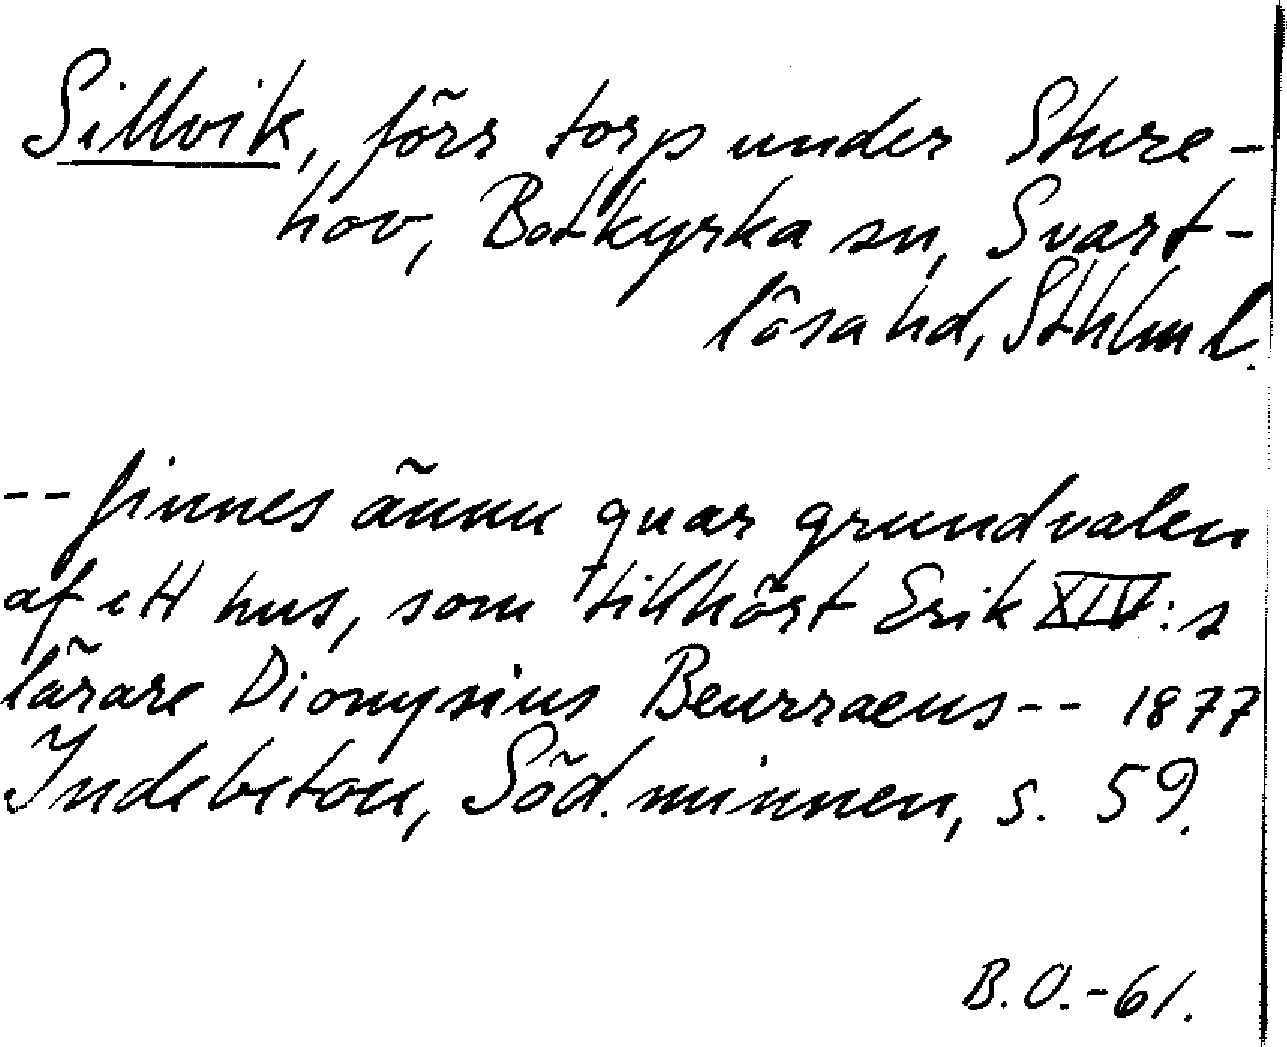 Sillvik, förs torp under Sture-
hov, Botkyrka sn, Svart-
lösa hd, Sthlm l.
-- finnes ännu quar grundvalen
af ett hus, som tillhört Erik XIV:s
lärare Dionysius Beurraeus -- 1877
Indebetou, Söd. minnen, s. 59.
B.O.-61.